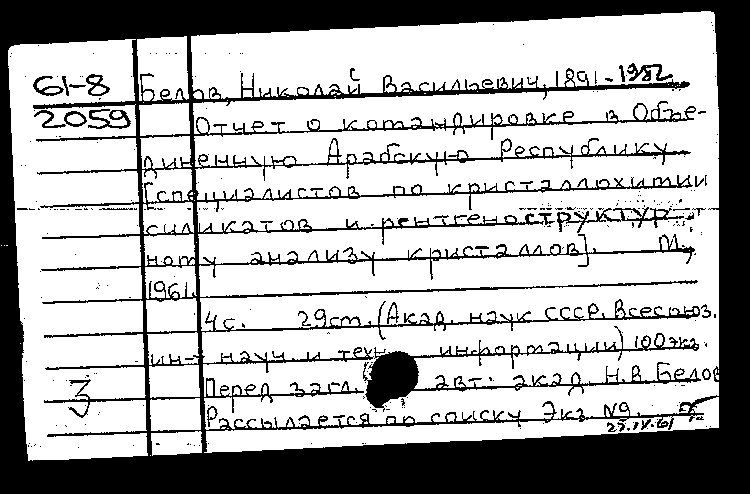 61-8 Белов, Николай Васильевич, 1891-1982
2059 Отчет о командировке в Объе-
диненную Арабскую Республику
[специалистов по кристаллохимии
силикатов и рентгеноструктур-
ному анализу кристаллов]. М.,
1961.
4с. 29см. (Акад. наук СССР. Всесоюз.
ин-т науч. и техн. информации) 100 экз.
З Перед загл. авт: акад. Н.В. Белов
Рассылается по списку Экз. №9.
25.IV.61